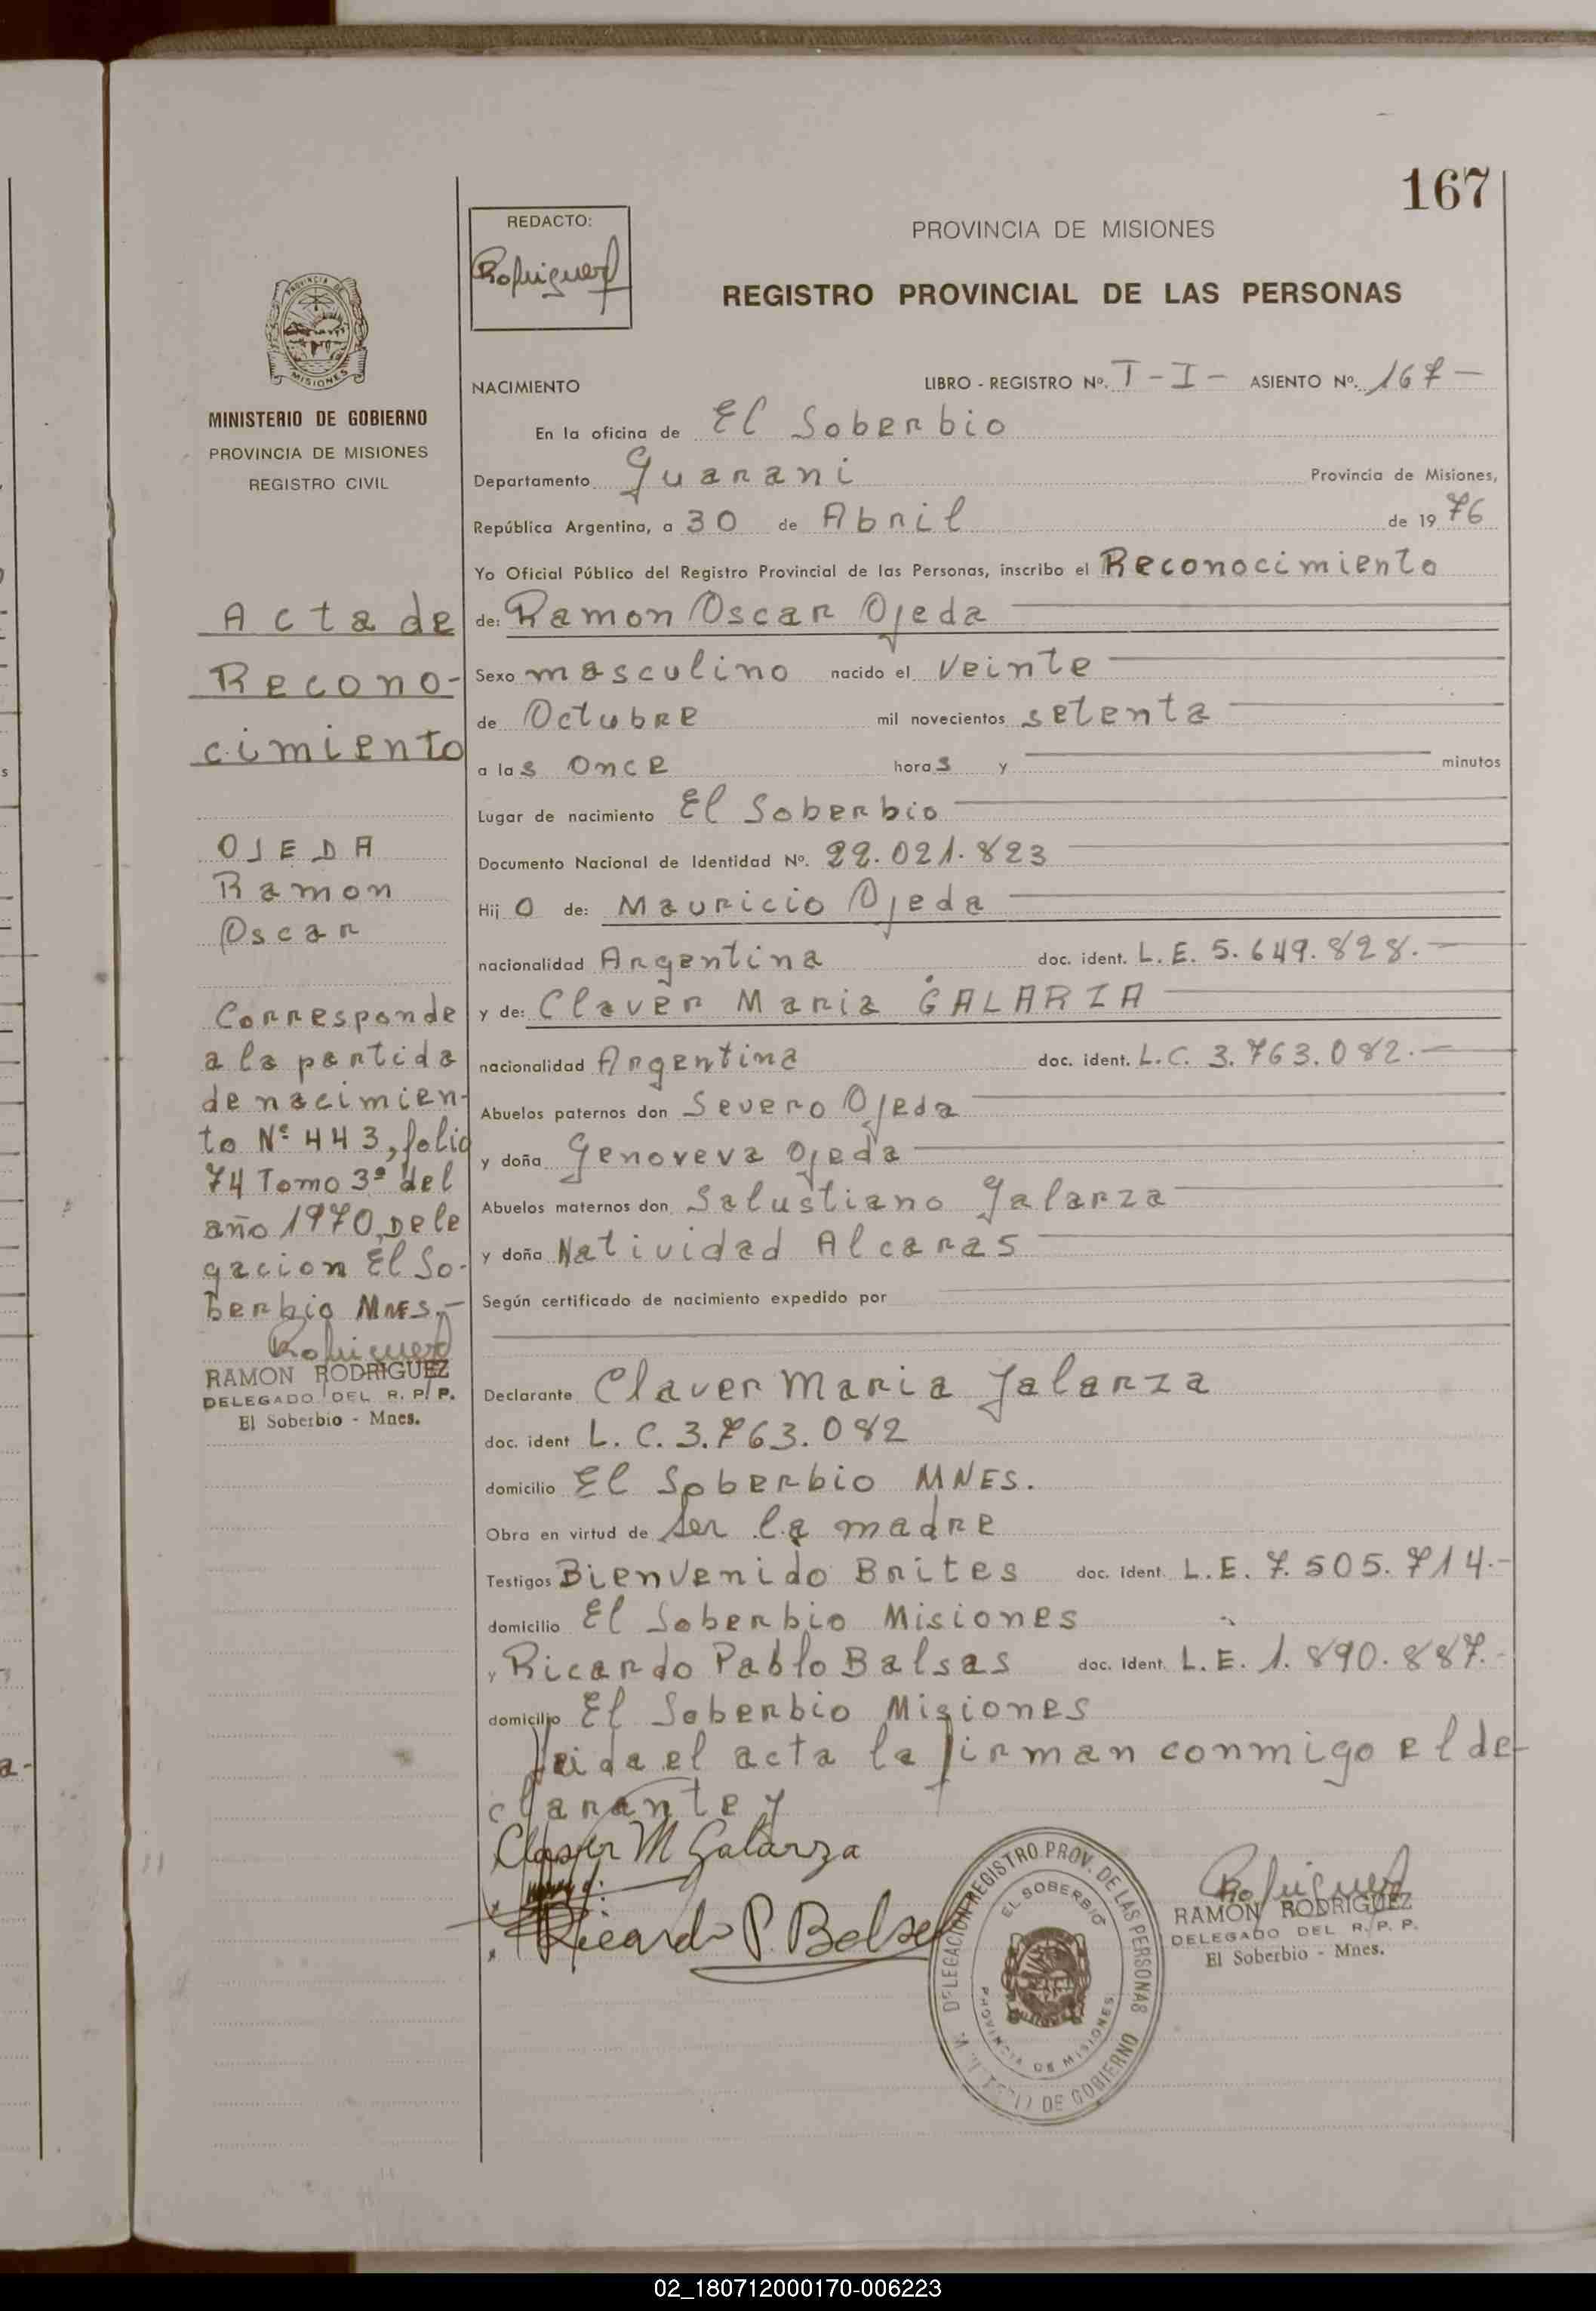 167
REDACTO:
Rodriguez
PROVINCIA DE MISIONES
REGISTRO PROVINCIAL DE LAS PERSONAS
PROVINCIA DE
MISIONES
MINISTERIO DE GOBIERNO
PROVINCIA DE MISIONES
REGISTRO CIVIL
Acta de
Recono-
cimiento
OJEDA
Ramon
Oscar
Corresponde
a la partida
de nacimien-
to Nº 443, folio
74 Tomo 3º del
año 1970, Dele
gacion El So-
berbio MNES.-
Rodriguez
RAMON RODRIGUEZ
DELEGADO DEL R. P. P.
El Soberbio - Mnes.
NACIMIENTO LIBRO - REGISTRO Nº. T - I - ASIENTO Nº. 167 -
En la oficina de El Soberbio
Departamento Guarani Provincia de Misiones,
República Argentina, a 30 de Abril de 1976
Yo Oficial Público del Registro Provincial de las Personas, inscribo el Reconocimiento
de: Ramon Oscar Ojeda
Sexo masculino nacido el veinte
de Octubre mil novecientos setenta
a las once horas y minutos
Lugar de nacimiento El Soberbio
Documento Nacional de Identidad Nº. 22.021.823
Hijo de: Mauricio Ojeda
nacionalidad Argentina doc. ident. L.E. 5.649.828.-
y de: Claver Maria GALARZA
nacionalidad Argentina doc. ident. L.C. 3.763.082.-
Abuelos paternos don Severo Ojeda
y doña Genoveva Ojeda
Abuelos maternos don Salustiano Galarza
y doña Natividad Alcaras
Según certificado de nacimiento expedido por
Declarante Claver Maria Galarza
doc. ident L.C. 3.763.082
domicilio El Soberbio MNES.
Obra en virtud de ser la madre
Testigos Bienvenido Brites doc. ident. L.E. 7.505.714.-
domicilio El Soberbio Misiones
y Ricardo Pablo Balsas doc. ident. L.E. 1.890.887.-
domicilio El Soberbio Misiones
Leida el acta la firman conmigo el de-
clarante y
Claver M Galarza
Ricardo P. Balsas
DELEGACION REGISTRO PROV. DE LAS PERSONAS
EL SOBERBIO
PROVINCIA DE MISIONES
DE GOBIERNO
Rodriguez
RAMON RODRIGUEZ
DELEGADO DEL R. P. P.
El Soberbio - Mnes.
02_180712000170-006223